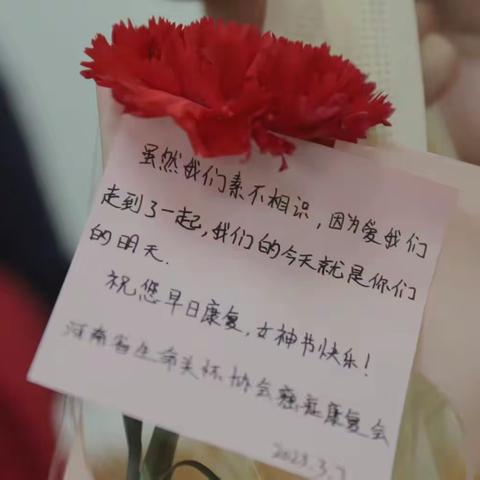 虽然我们素不相识，因为爱我们
走到了一起，我们的今天就是你们
的明天.
祝您早日康复，女神节快乐！
河南省生命关怀协会癌症康复会
2023.3.7